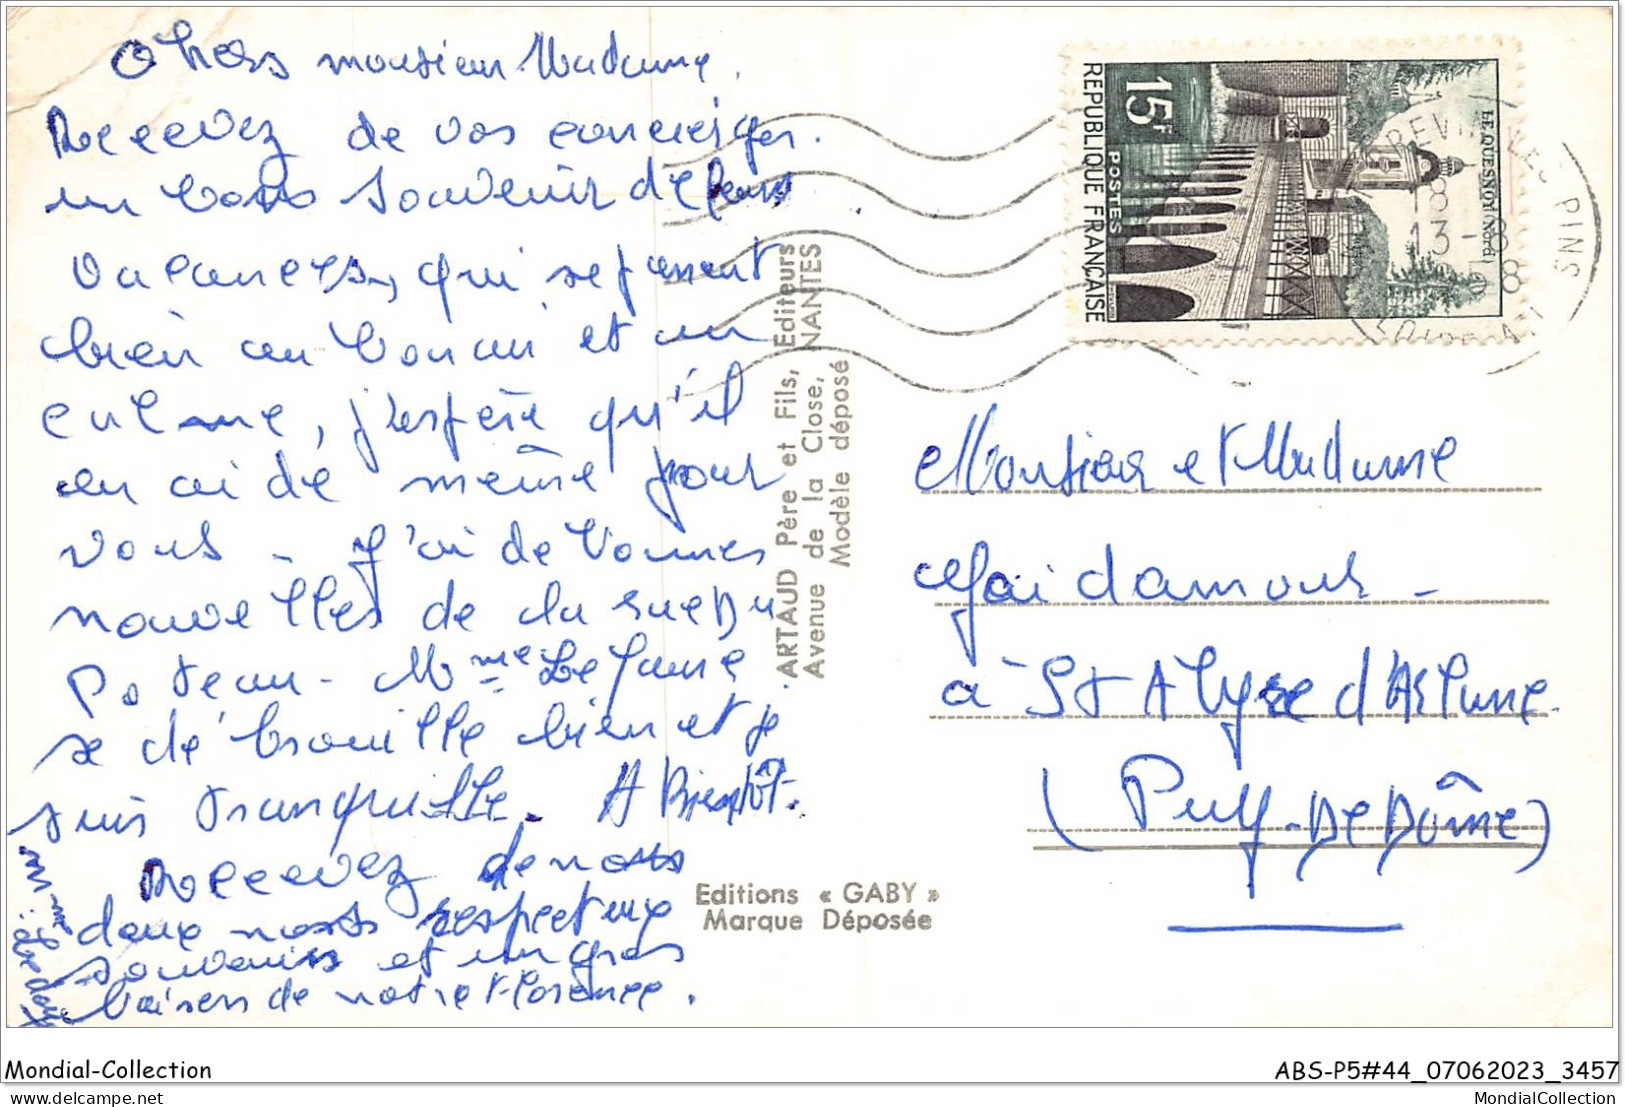 Chers monsieur Madame.
Recevez de vos concierges.
un bons souvenir de leurs
vacances, qui se passent
bien au bon air et au
calme, j'espère qu'il
en ai de même pour
vous - J'ai de bonnes
nouvelles de la rue Du
Poteau - Mme Le
se débrouille bien et je
suis tranquille. A Bientôt.
Recevez de nous
deux nos respectueux
souvenirs et un gros
baisers de notre Florence.
Mme
REPUBLIQUE FRANÇAISE
POSTES
15F
LE QUESNOY (NORD)
LES PINS
18
13-8
ARTAUD Père et Fils, Editeurs
Avenue de la Close, NANTES
Modèle déposé
Monsieur et Madame
à St Alyre d'Arlanc
(Puy-De Dôme)
Editions « GABY »
Marque Déposée
Mondial-Collection
ABS-P5#44_07062023_3457
delcampe.net
MondialCollection